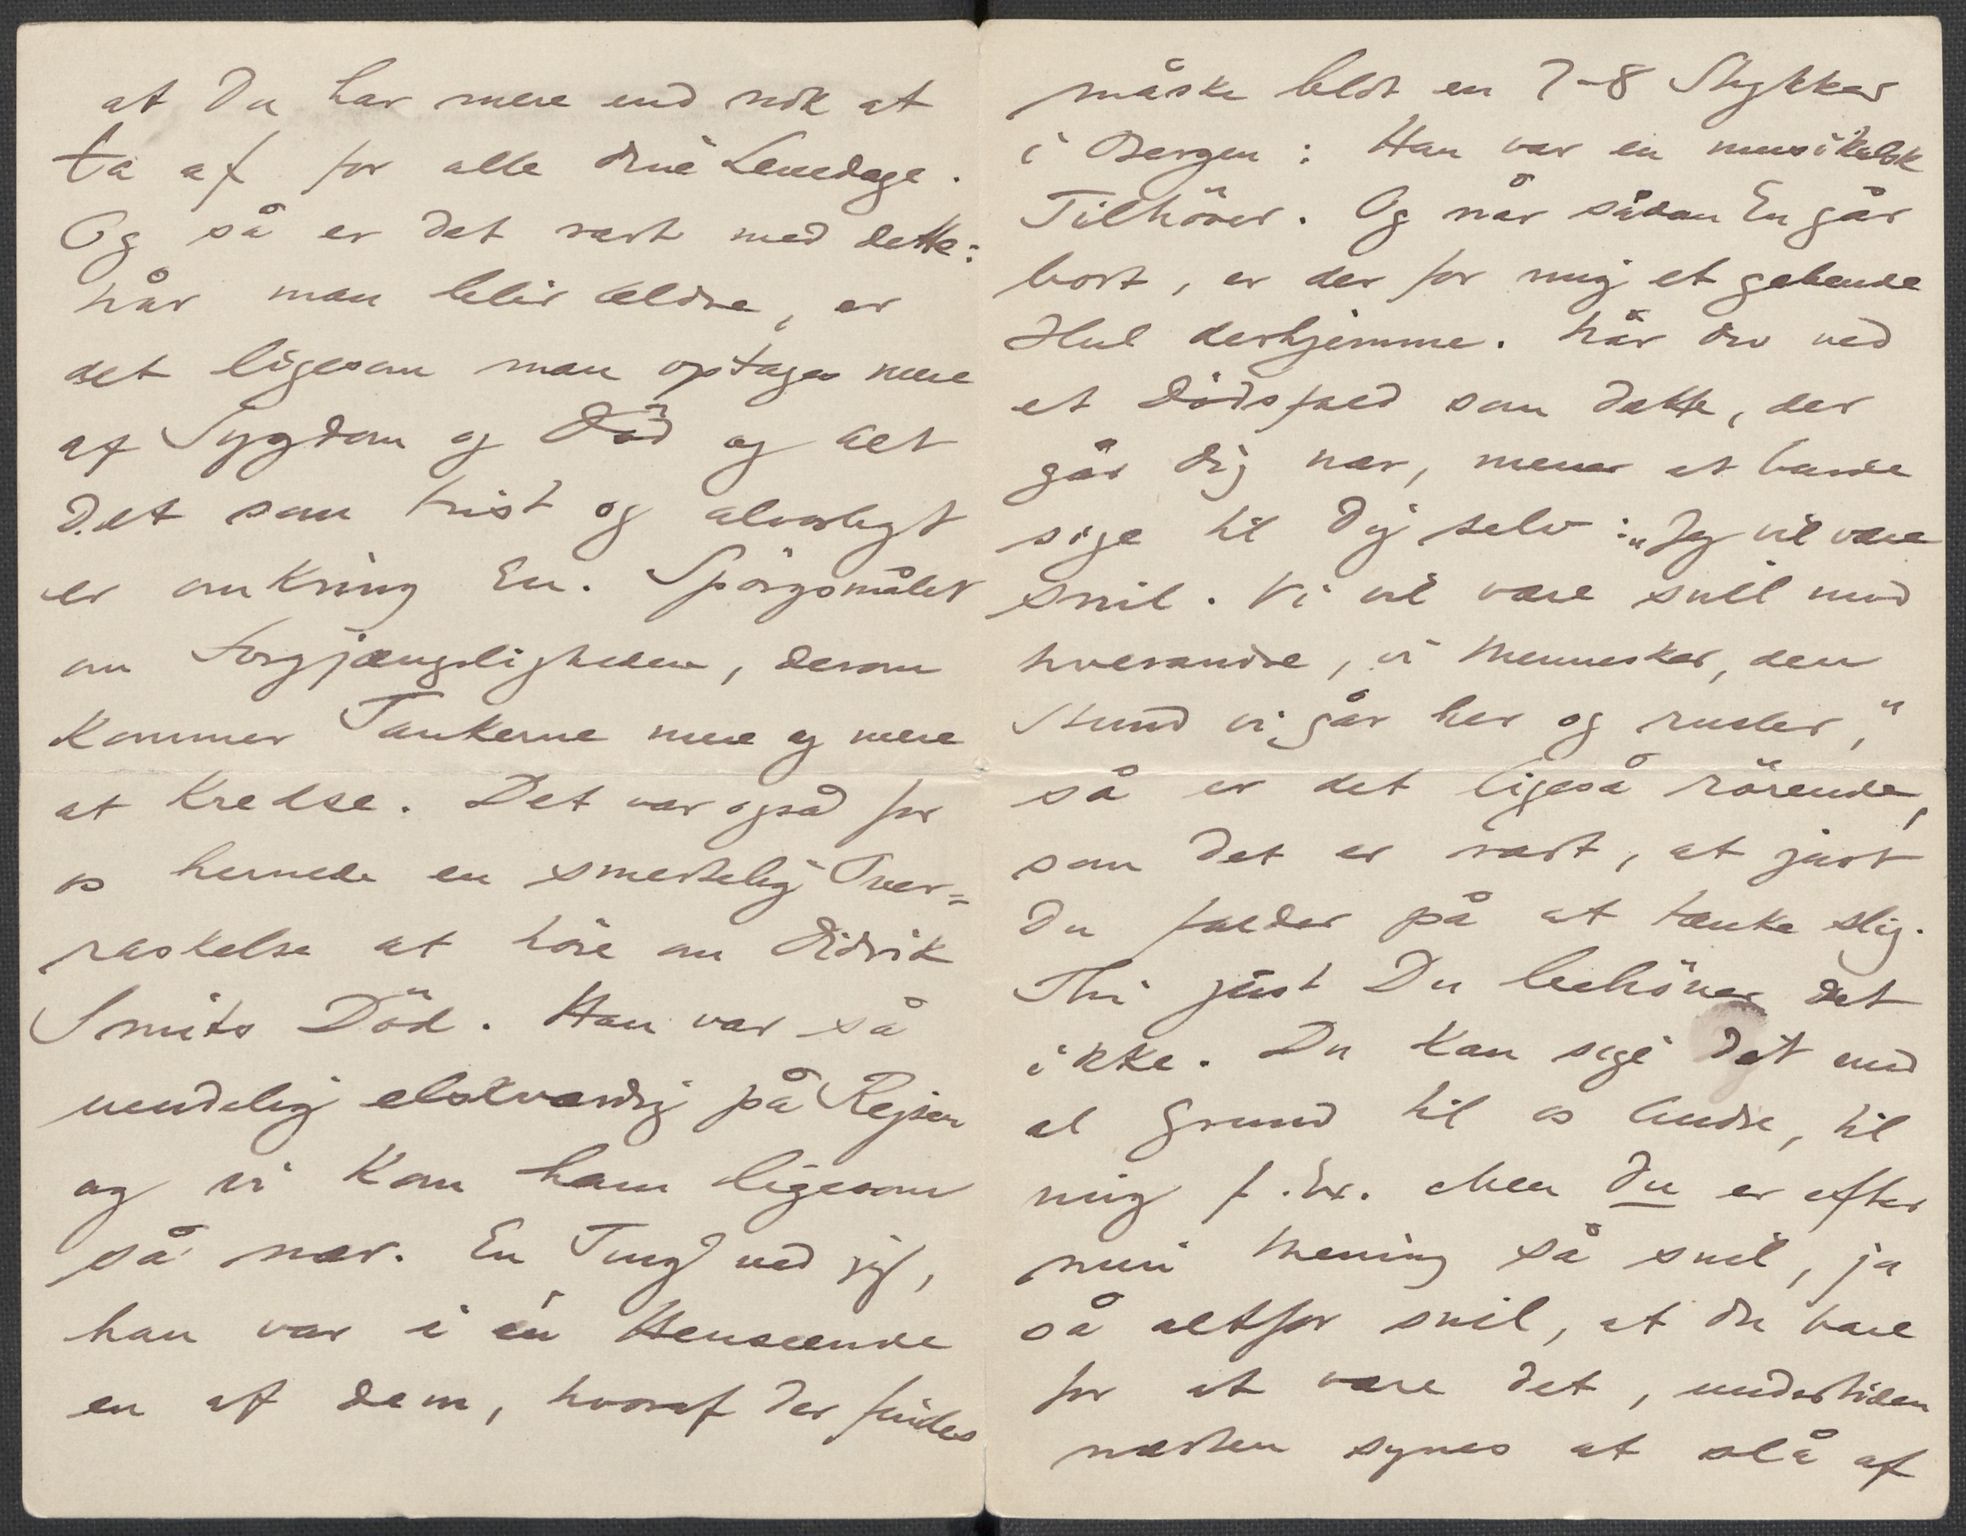 at Du har mere end nok at
ta af for alle dine Levedage.
Og så er det rart med dette:
når man blir ældre, er
det ligesom man optages mere
af Sygdom og Död og alt
det som trist og alvorligt
er omkring En. Spörgsmålet
om Forgjængeligheden, derom
kommer Tankerne mere og mere
at kredse. Det var også for
os hernede en smertelig Over=
raskelse at höre om Didrik
Smits Död. Han var så
uendelig elskværdig på Rejsen
og vi kom ham ligesom
så nær. En Ting ved jeg,
han var i én Henseende
en af dem, hvoraf der findes
måske blot en 7-8 Stykker
i Bergen: Han var en musikalsk
Tilhörer. Og når sådan En går
bort, er der for mig et gabende
Hul derhjemme. Når du ved
et Dödsfald som dette, der
går dig nær, mener at burde
sige til dig selv: „Jeg vil være
snil. Vi vil være snill mod
hverandre, vi Mennesker, den
Stund vi går her og rusler,"
så er det ligeså rörende,
som det er rart, at just
Du falder på at tænke slig.
Thi just Du behöver det
ikke. Du kan sige det med
al Grund til os Andre, til
mig f. Ex. Men Du er efter
min Mening så snil, ja
så altfor snil, at Du bare
for at være det, undertiden
næsten synes at slå af